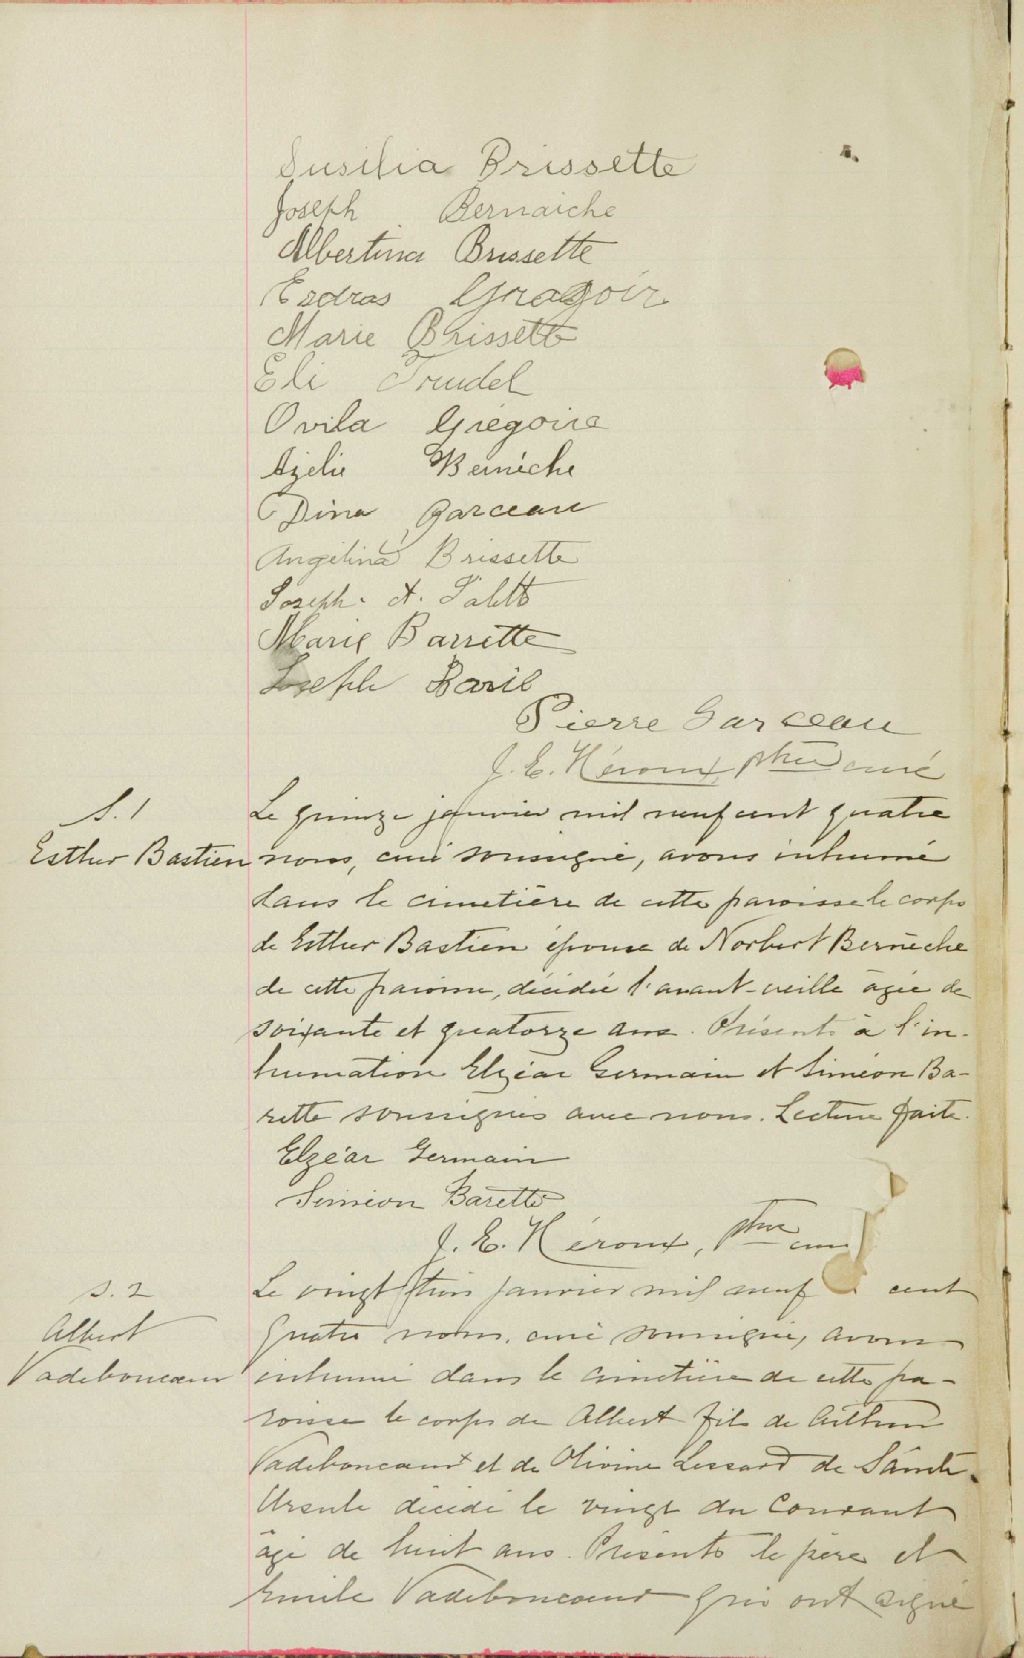 Susilia Brissette
Joseph Bernaiche
Albertina Brissette
Esdras Gragoir
Marie Brissette
Eli Trudel
Ovila Grégoire
Azelie Berneche
Dina Garceau
Angelina Brissette
Joseph A.
Marie Barrette
Joseph Baril
Pierre Garceau
J. E. Héroux, ptre curé
S. 1
Esther Bastien
Le quinze janvier mil neuf cent quatre
nous, curé soussigné, avons inhumé
dans le cimetière de cette paroisse le corps
de Esther Bastien épouse de Norbert Bernèche
de cette paroisse, décédée l'avant-veille âgée de
soixante et quatorze ans. Présents à l'in-
humation Elzéar Germain et Siméon Ba-
rette soussignés avec nous. Lecture faite.
Elzéar Germain
Siméon Barette
J. E. Héroux, ptre curé
S. 2
Albert
Vadeboncoeur
Le vingt trois janvier mil neuf cent
quatre nous, curé soussigné, avons
inhumé dans le cimetière de cette pa-
roisse le corps de Albert fils de Arthur
Vadeboncoeur et de Olivine Lessard de Sainte-
Ursule décédé le vingt du courant
âgé de huit ans. Présents le père et
Emile Vadeboncoeur qui ont signé